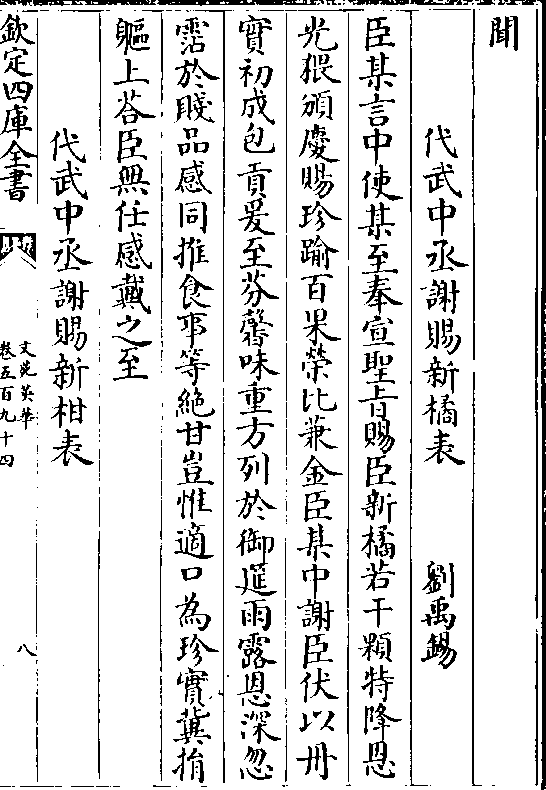 聞
代武中丞謝賜新橘表 劉禹錫
臣某言中使某至奉宣聖旨賜臣新橘若干顆特降恩
光猥頒慶賜珍踰百果榮比兼金臣某中謝臣伏以丹
實初成包貢爰至芬馨味重方列於御筵雨露恩深忽
霑於賤品感同推食事等絶甘豈惟適口為珍實冀捐
軀上荅臣無任感戴之至
代武中丞謝賜新柑表
欽定四庫全書
文苑英華
卷五百九十四
八